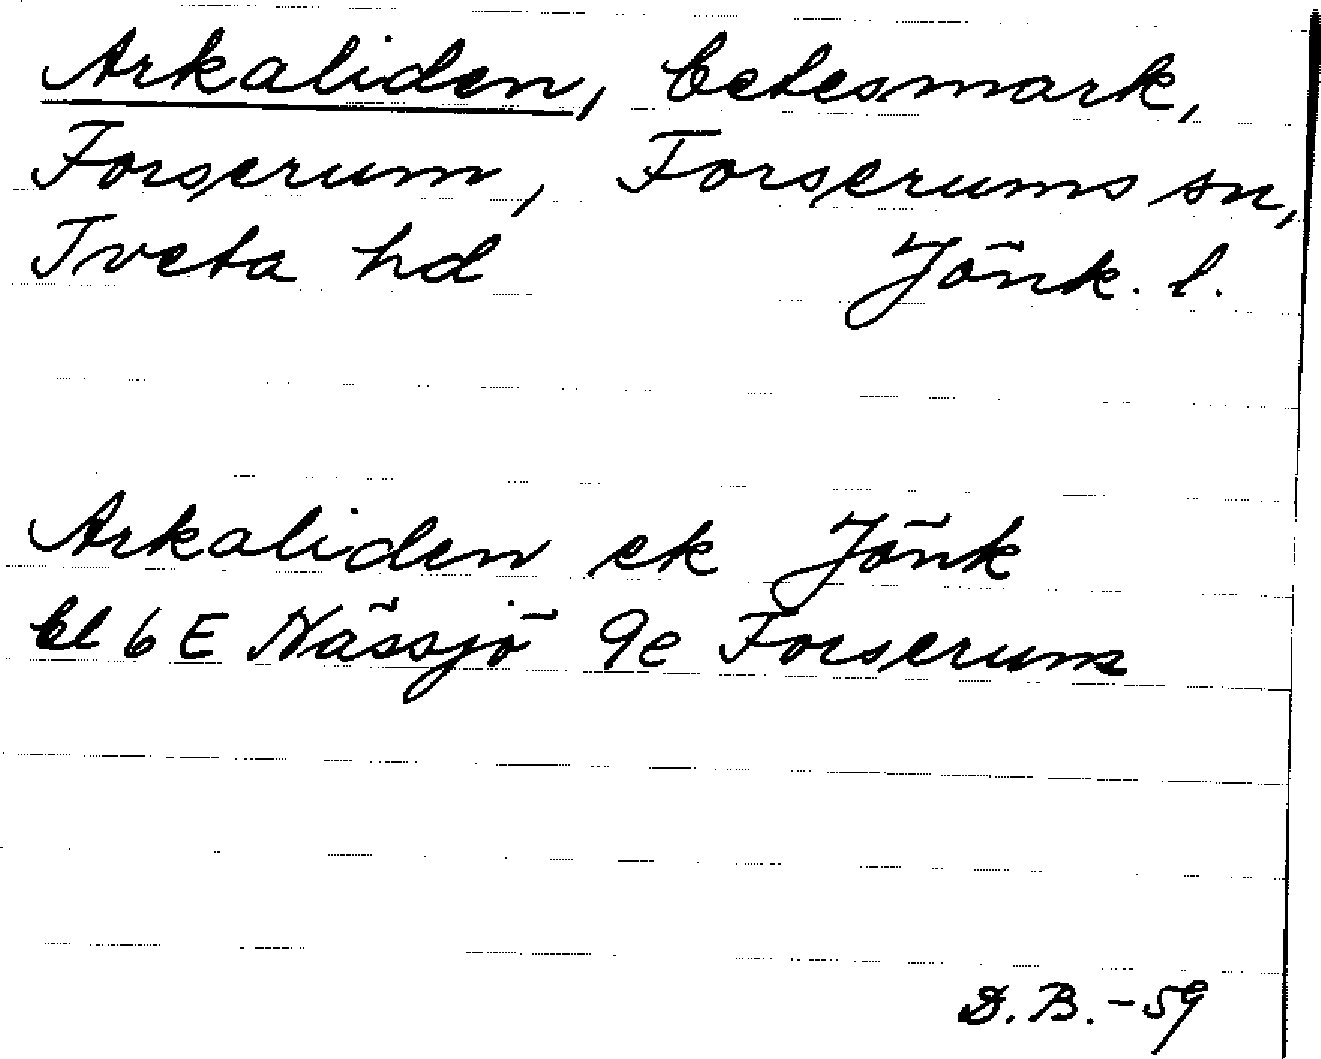 Arkaliden, betesmark,
Forserum, Forserums sn,
Tveta hd Jönk. l.
Arkaliden ek Jönk
bl 6 E Nässjö 9e Forserum
D. B. - 59